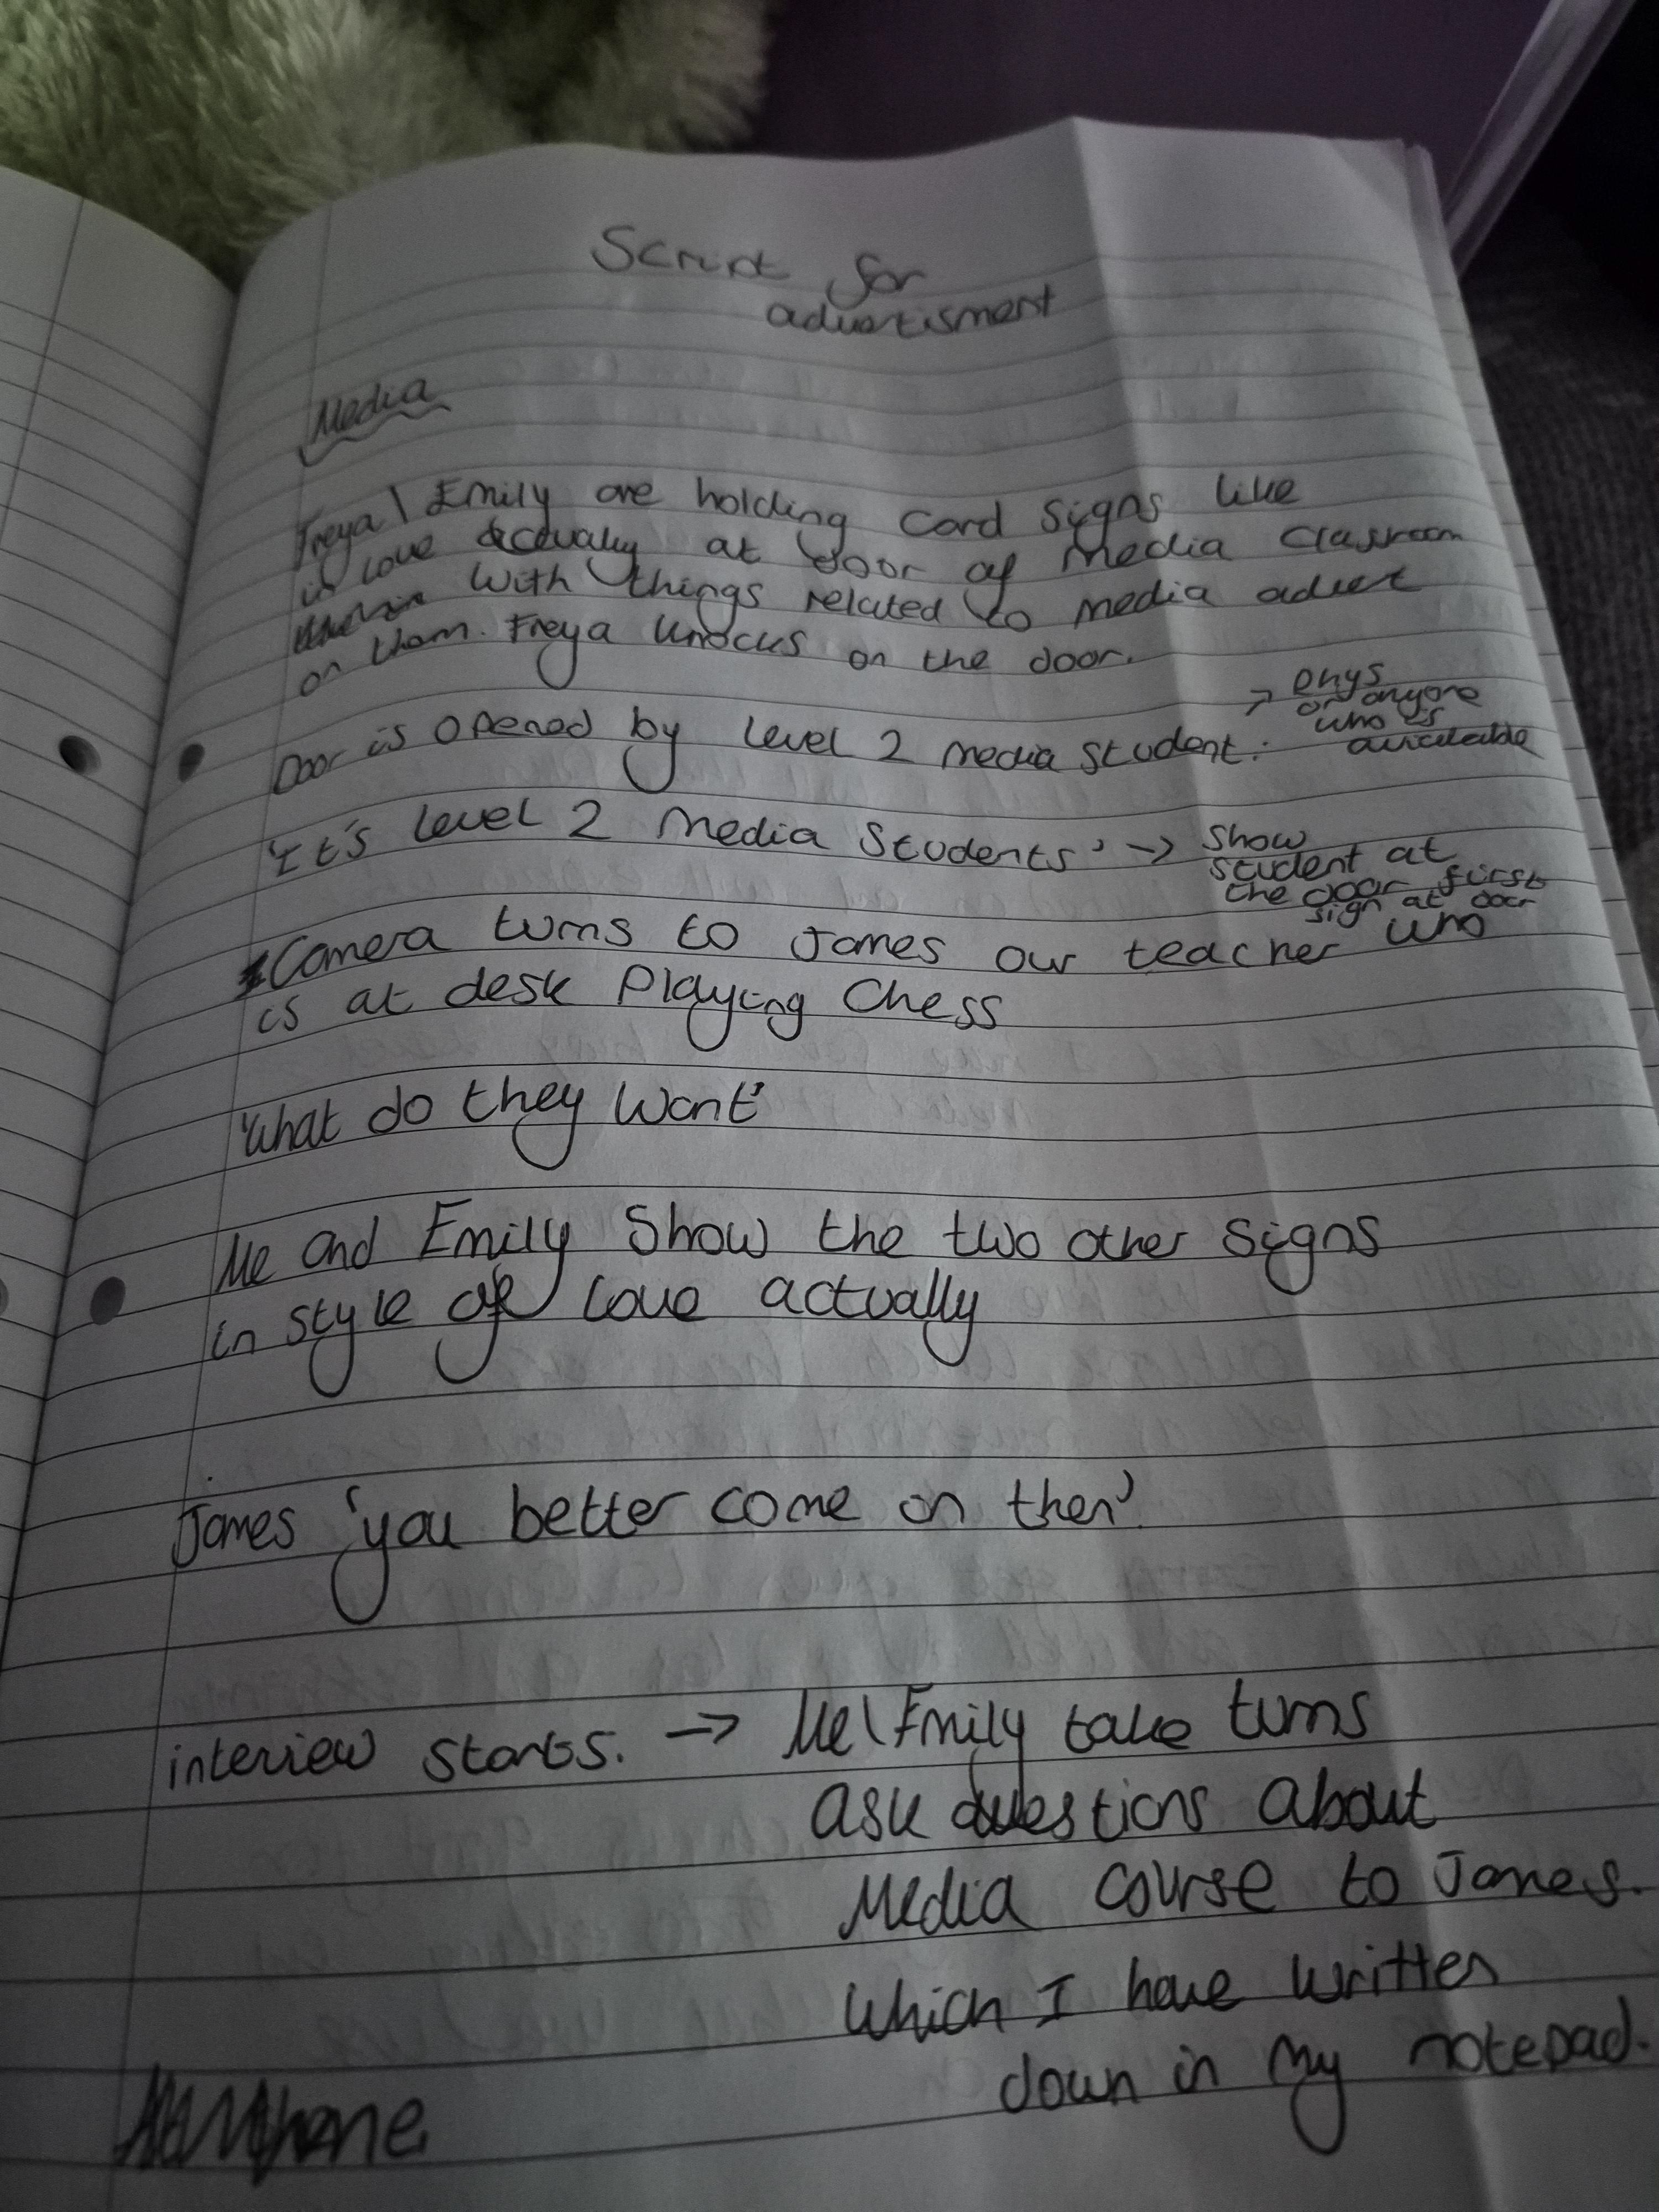 Script for
advertisment
Media
Freya \ Emily are holding card signs like
in love actually at door of media classroom
with things related to media advert
on them. Freya knocks on the door.
Door is opened by level 2 media student. → Rhys
or anyone
who is
available
'It's level 2 media students' → Show
student at
the door first
sign at door
Camera turns to James our teacher who
is at desk playing chess
'what do they want'
Me and Emily show the two other signs
in style of love actually
James 'you better come on then'.
interview starts. → Me \ Emily take turns
ask questions about
Media course to James.
which I have written
down in my notepad.